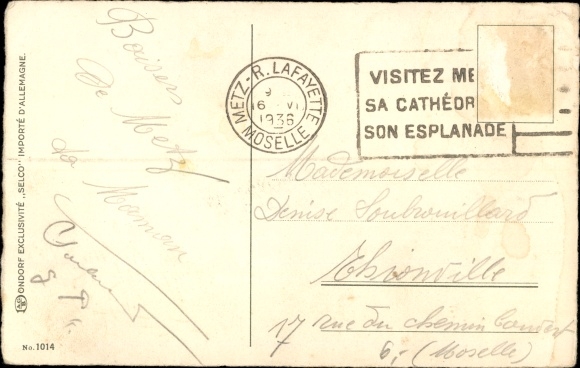 Baisers
De Metz
ta Maman
ONDORF EXCLUSIVITÉ „SELCO" IMPORTÉ D'ALLEMAGNE.
No. 1014
METZ-R. LAFAYETTE
9
6 VI
1936
MOSELLE
VISITEZ ME
SA CATHÉDR
SON ESPLANADE
Mademoiselle
Denise Soubrouillard
Thionville
17 rue du chemin
(Moselle)